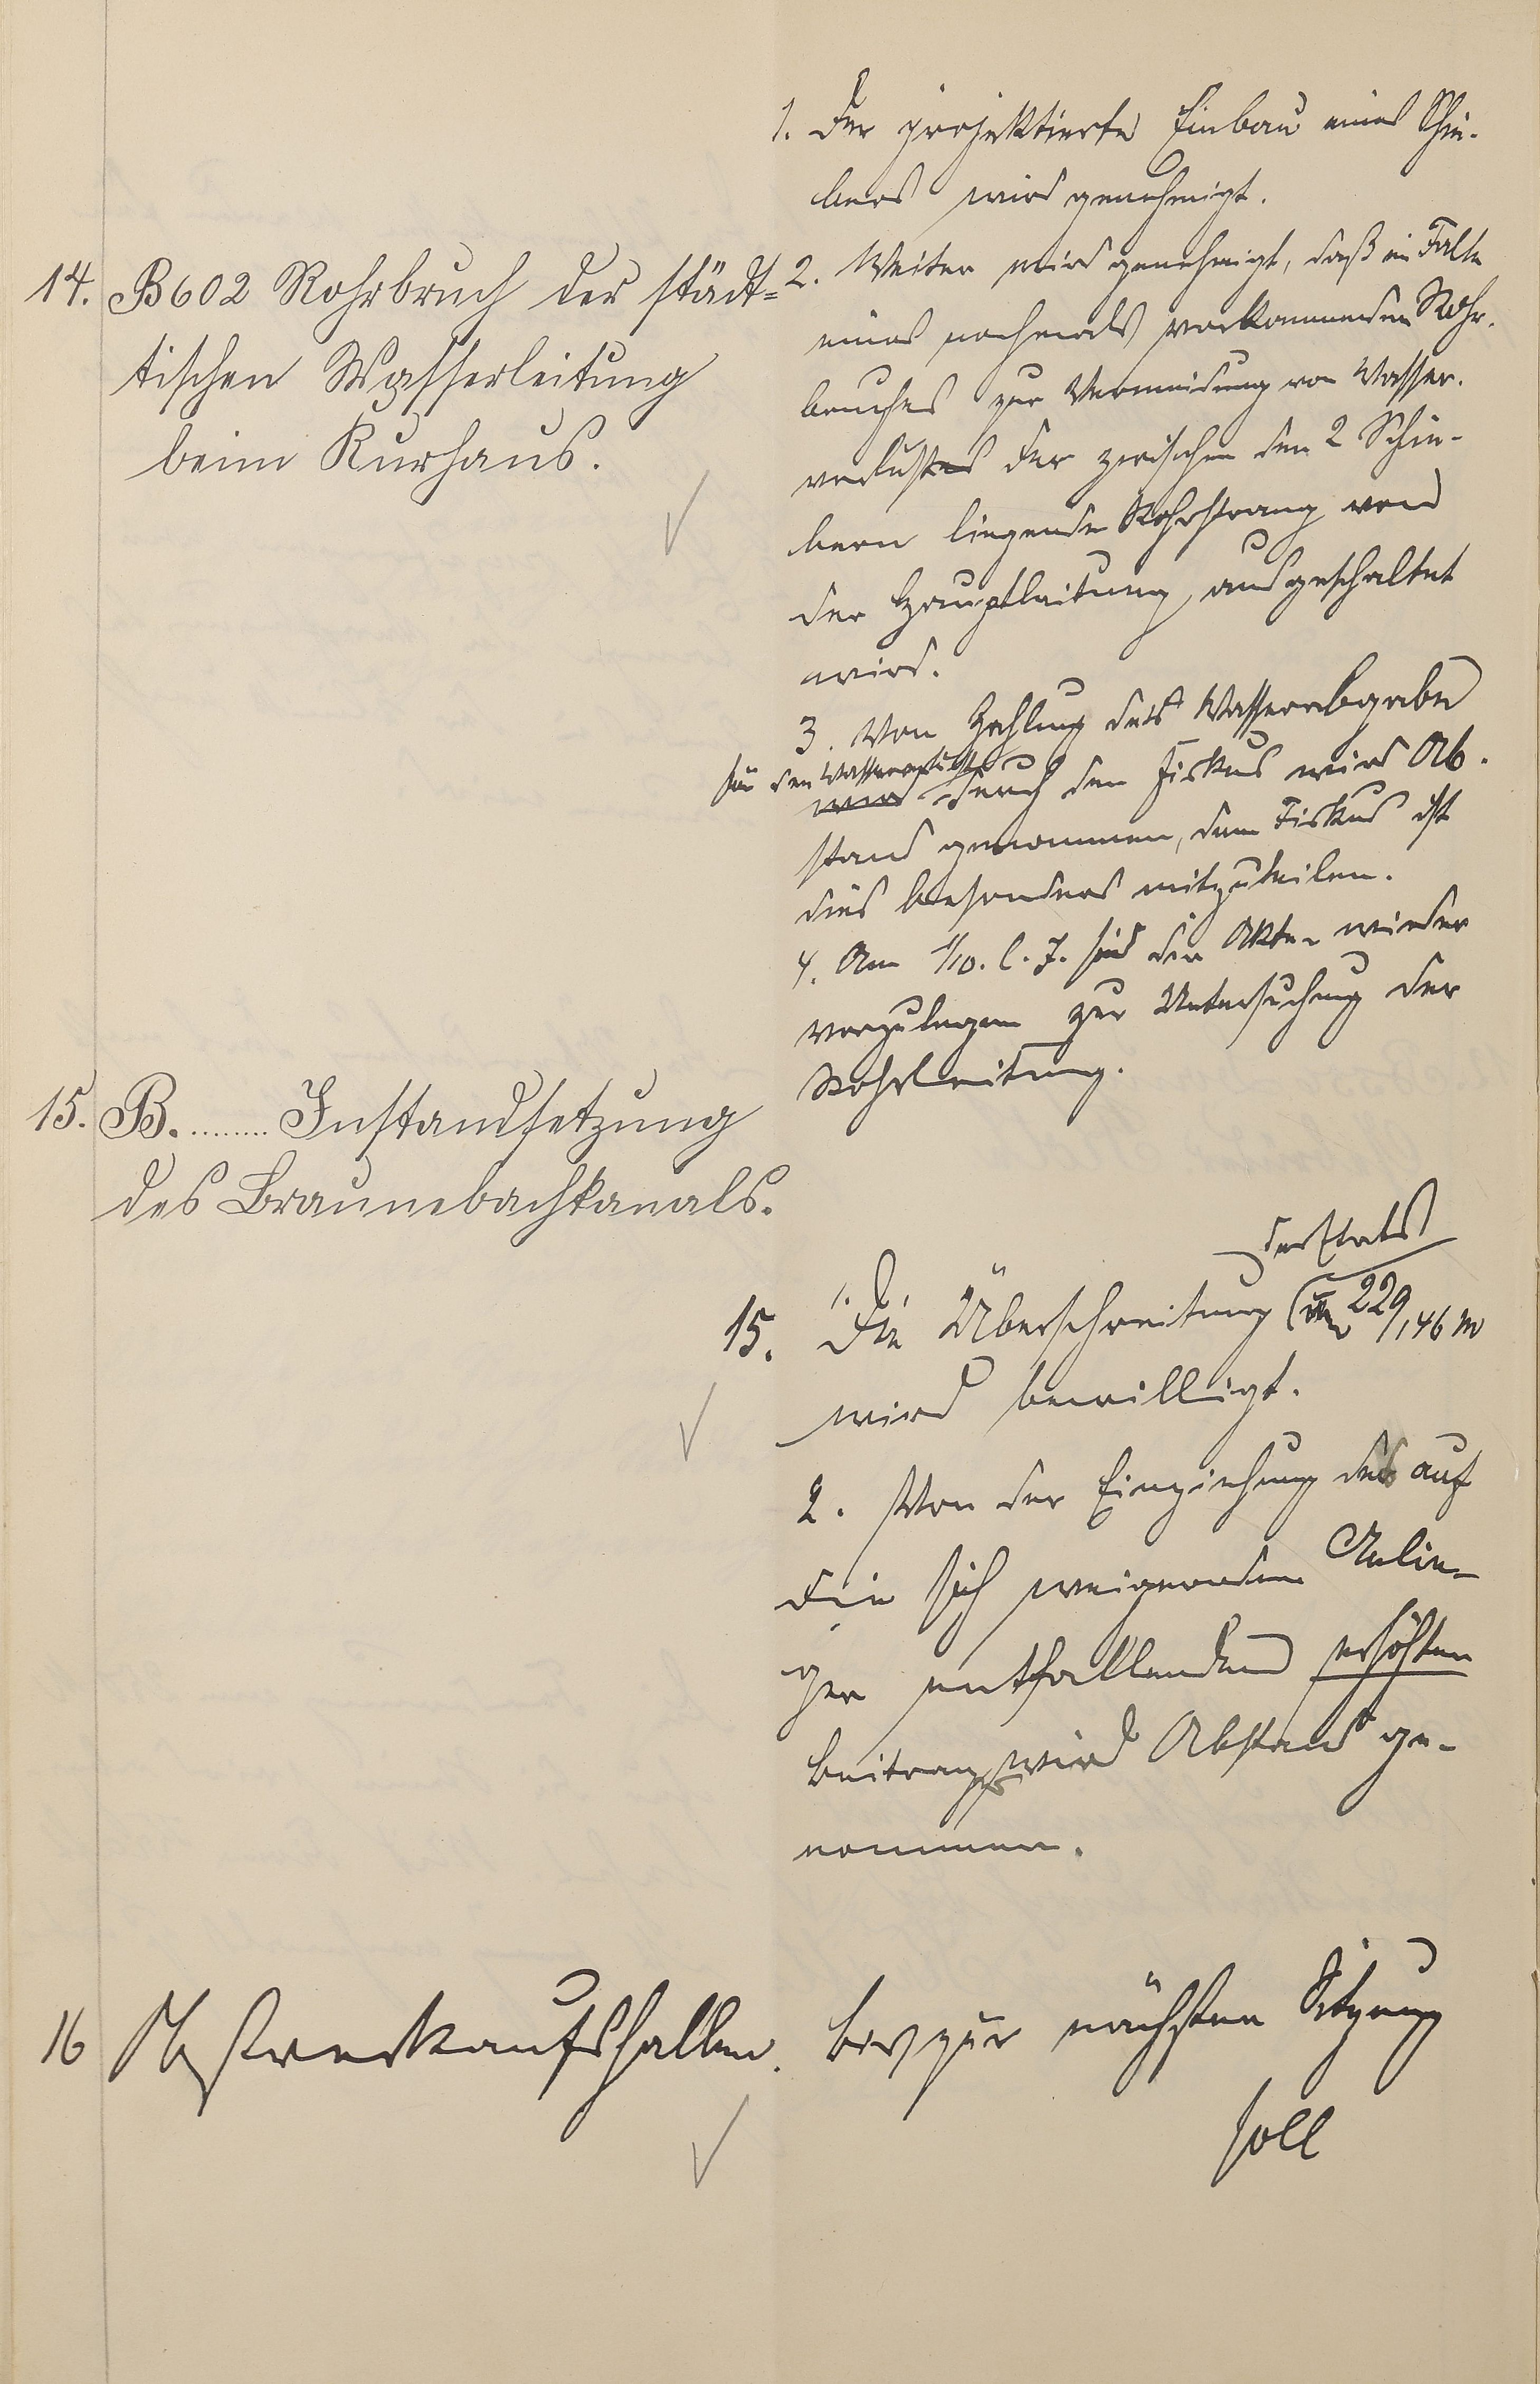 14. B 602 Rohrbruch der städt=
tischen Wasserleitung
beim Kurhaus.
1. Der projektierte Einbau eines Schie-
bers wird genehmigt.
2. Weiter wird genehmigt, daß im Falle
eines nochmals vorkommenden Rohr-
bruches zur Vermeidung von Wasser-
verlustes der zwischen den 2 Schie-
bern liegende Rohrstrang von
der Hauptleitung ausgeschaltet
wird.
3. Von Zahlung des Wasserabgabe
für den Wasserverlust
wird durch den Fiskus wird Ab-
stand genommen, dem Fiskus ist
dies besonders mitzuteilen.
4. Am 1/10. l. J. sind die Akten wieder
vorzulegen zur Untersuchung der
Rohrleitung.
15. B. ........ Instandsetzung
des Braunebachkanals.
des Etats
15. 1. Die Überschreitung um 229,46 M
wird bewilligt.
2. Von der Einziehung des auf
die sich weigernden Anlie-
ger entfallenden erhöhten
Beitrags wird Abstand ge-
nommen.
16 Verkaufshallen. bis zur nächsten Sitzung
soll